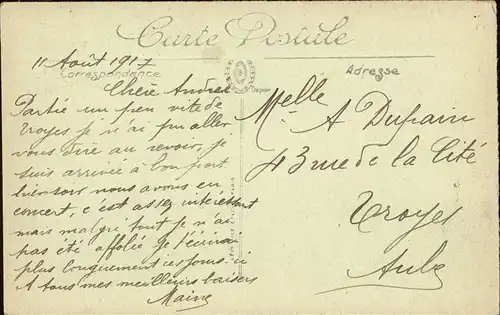 Carte Postale
Correspondance
Adresse
11 Août 1917
Chère Andrée
Partie un peu vite de
Troyes je n'ai pu aller
vous dire au revoir, je
suis arrivée à bon port
hier soir nous avons eu
concert, c'est assez intéressant
mais malgré tout je n'ai
pas été affolée je t'écrirai
plus longuement ces jours-ci
A tous mes meilleurs baisers
Melle A Dupain
43 rue de la Cité
Troyes
Aube